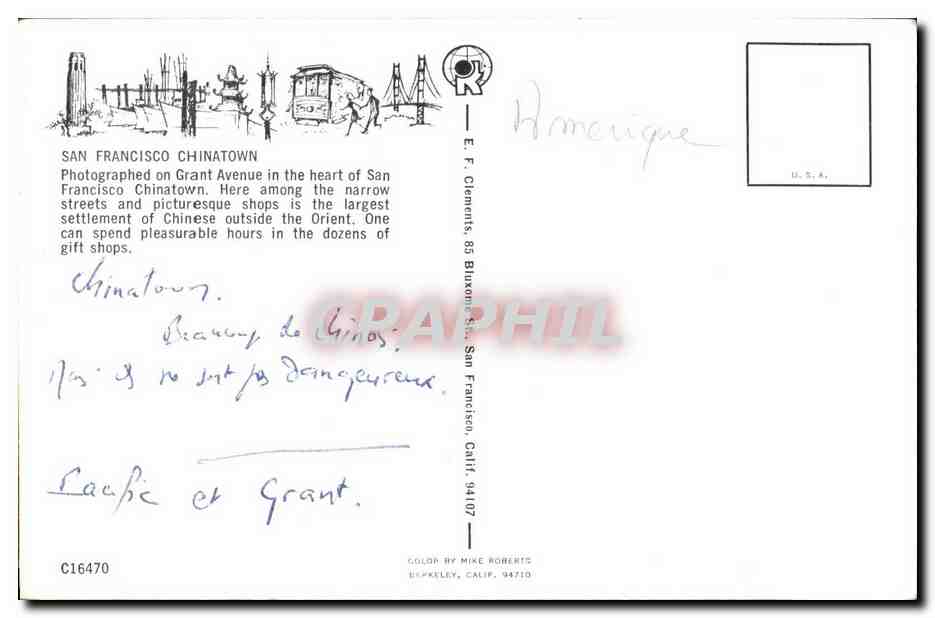 SAN FRANCISCO CHINATOWN
Photographed on Grant Avenue in the heart of San
Francisco Chinatown. Here among the narrow
streets and picturesque shops is the largest
settlement of Chinese outside the Orient. One
can spend pleasurable hours in the dozens of
gift shops.
Chinatown.
Beaucoup de Chinois.
Mais ils ne sont pas Dangeureux.
Pacific et Grant.
C16470
E. F. Clements, 85 Bluxome St., San Francisco, Calif. 94107
COLOR BY MIKE ROBERTS
BERKELEY, CALIF. 94710
Amerique
U.S.A.
CRAPHIL